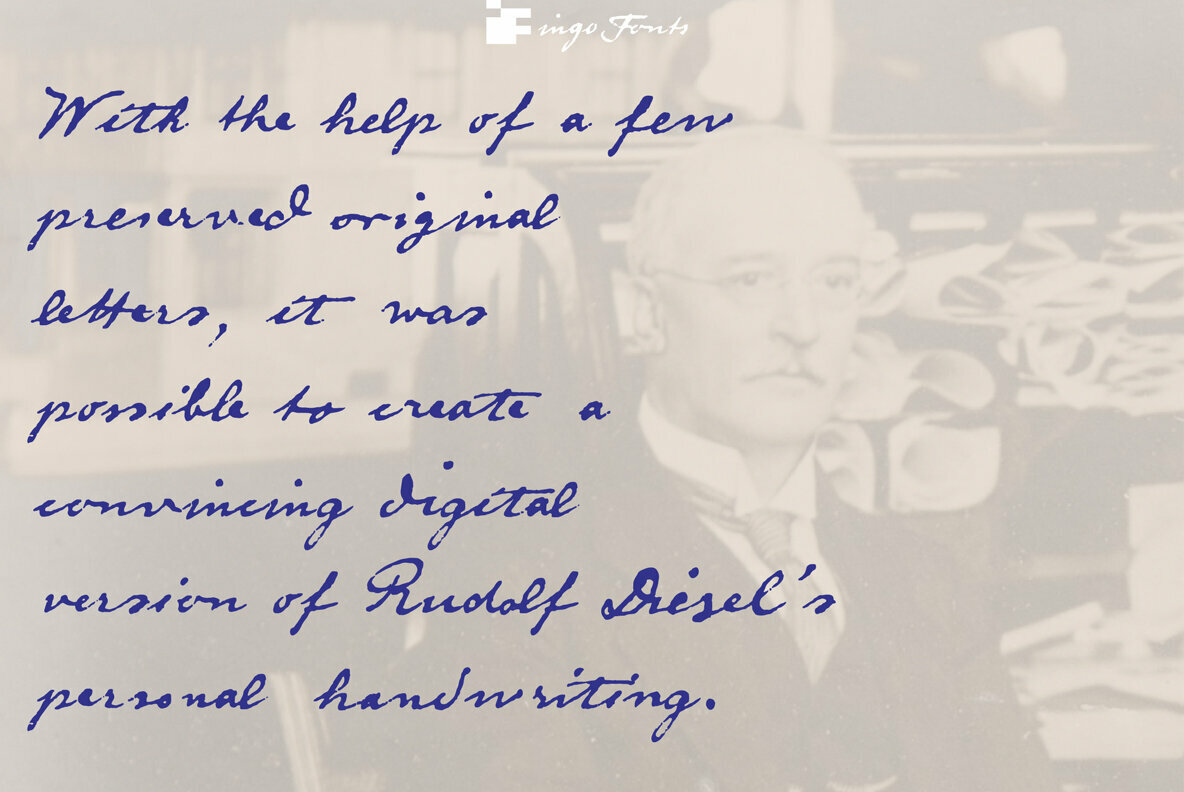 ingo Fonts
With the help of a few
preserved original
letters, it was
possible to create a
convincing digital
version of Rudolf Diesel's
personal handwriting.